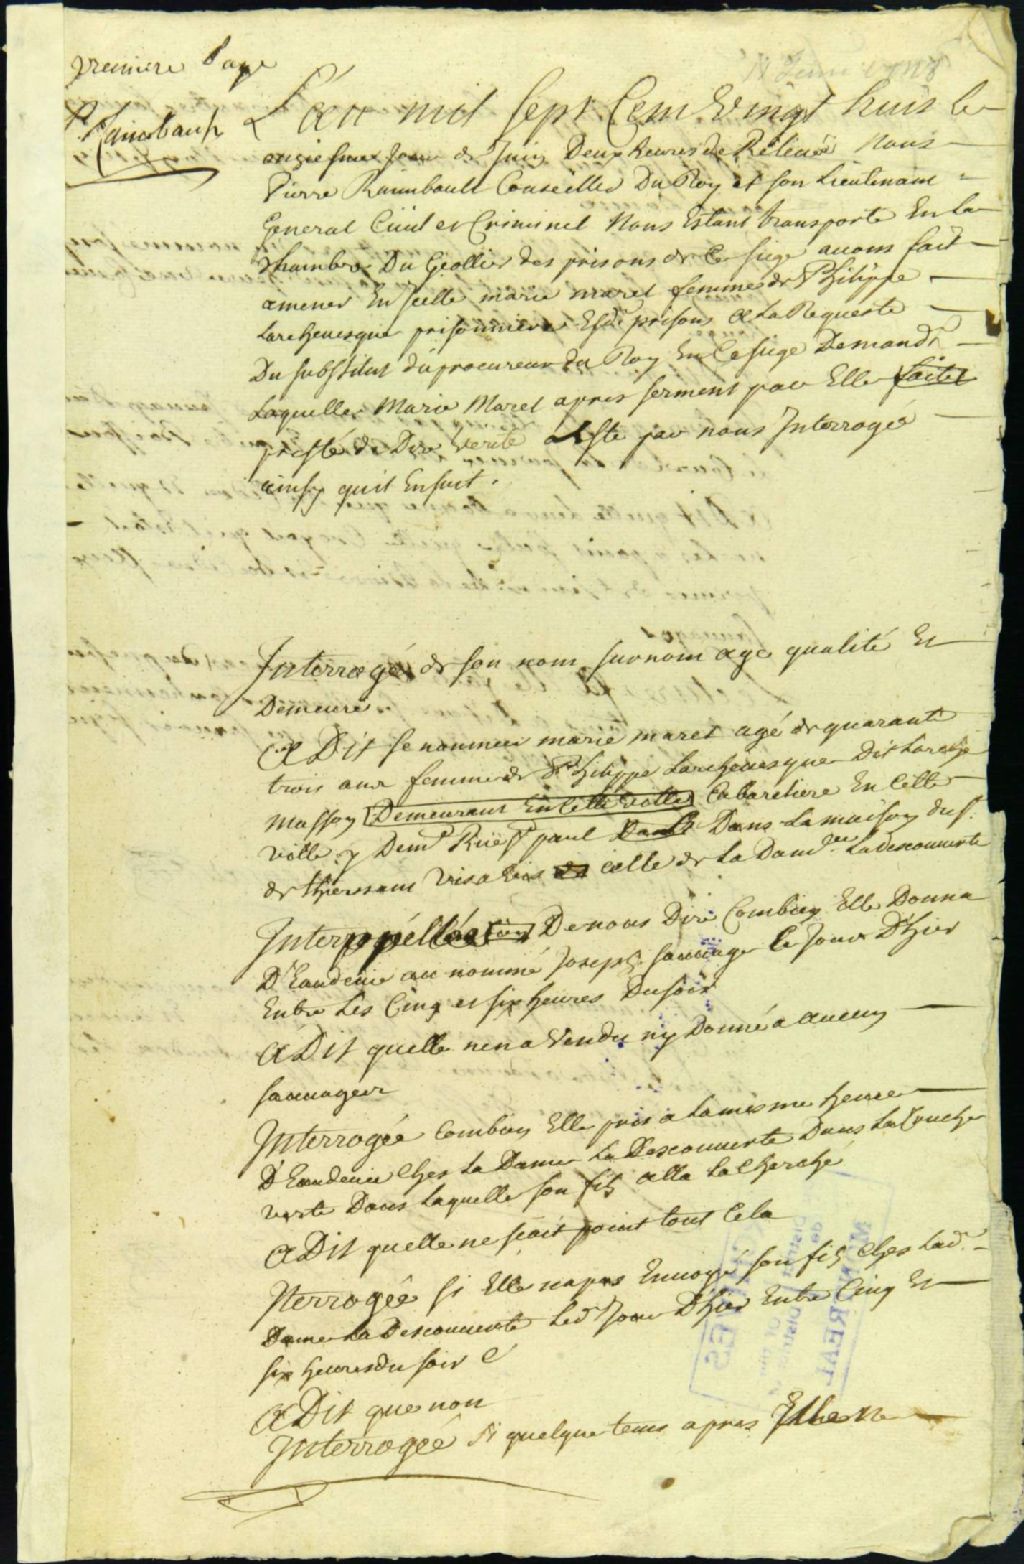 premiere page
P Raimbault
L'an mil sept Cent Vingt huit le
onziesme Jour de Juin Deux heures de Relevée Nous
Pierre Raimbault Conseiller Du Roy et son Lieutenant
General Civil et Criminel Nous Estant transporté En la
Chambre Du Geollier des prisons de Ce siege avons fait
amener En Icelle marie maret femme de Philippe
Larchevesque prisonniere Esd. prisons a La Requeste
Du substitut du procureur du Roy En Ce siege Demandr
Laquelle Marie Maret apres serment par Elle faitet
presté de Dire verité a Esté par nous Interrogée
ainsy quil Ensuit.
Interrogée de son nom surnom age qualité Et
Demeure
A Dit se nommer marie maret agé de quarante
trois ans femme de Philippe Larchevesque Dit Larche
masson Demeurant En Cette ville Cabaretiere En Cette
ville y Demt Rue St paul Dans Dans La maison du sr.
de thiersant vis a vis de celle de La Dame La descouverte
Interppéllée De nous Dire Combien Elle Donna
D'Eaudevie au nommé Joseph sauvage le Jour D'hier
Entre Les Cinq et six heures Du soir
A Dit quelle nen a Vendu ny Donné a aucun
sauvages
Interrogée Combien Elle pris a La mesme heure
D'Eaudevie Ches La Dame La Descouverte Dans La Cruche
verte Dans Laquelle son fils alla La Cherché
A Dit quelle ne sçait point tout Cela
Iterrogée si Elle na pas Envoyé son fils Ches Lad.
Dame La Descouverte Led. Jour D'hier Entre Cinq Et
six heures du soir
A Dit que non
Interrogée si quelque tems apres Elle ne
MONTREAL
ARCHIVES